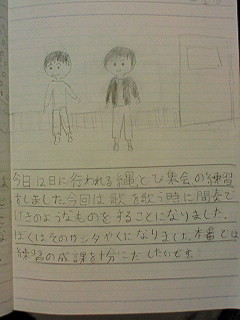 今日12日に行われる縄とび集会の練習
をしました。今回は歌を歌う時に間奏で
げきのようなものをすることになりました。
ぼくはそのサンタやくになりました。本番では
練習の成課を十分にだしたいです。